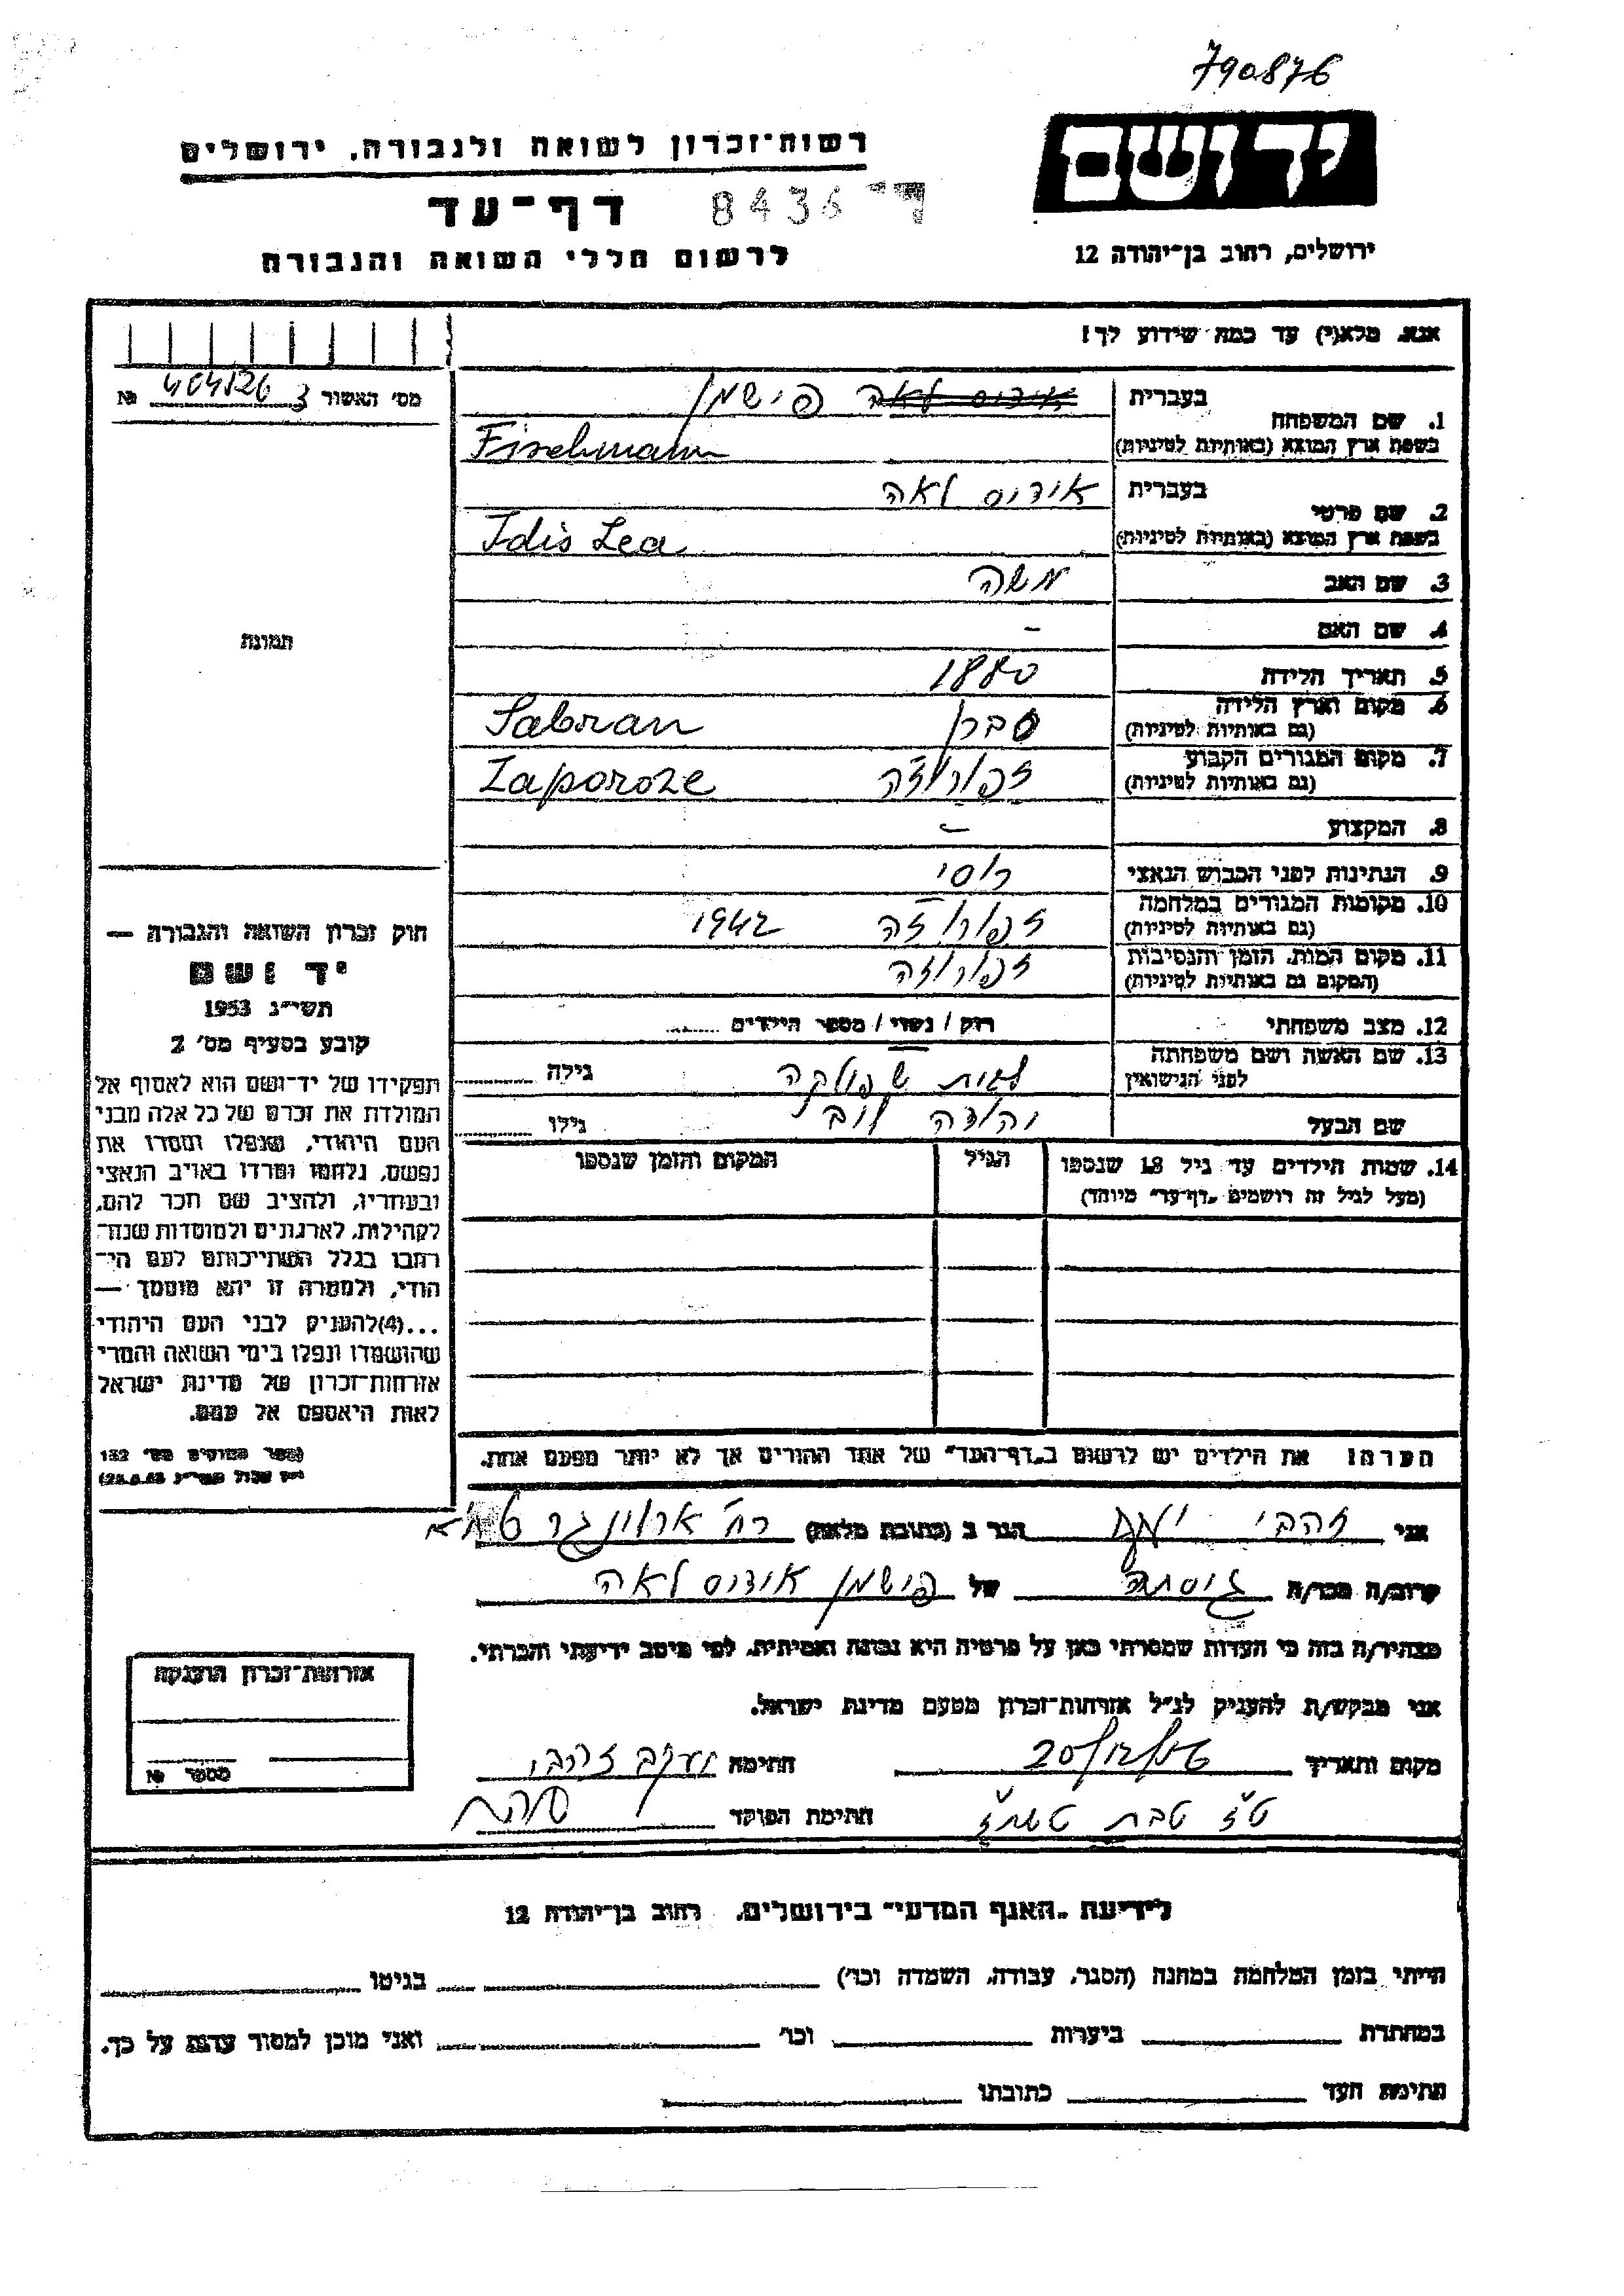 790876
יד ושם
רשות־זכרון לשואה ולגבורה, ירושלים
דף־עד
8436
ירושלים, רחוב בן־יהודה 12
לרשום חללי השואה והגבורה
אנא, מלא(י) עד כמה שידוע לך!
מס׳ האשור 3 404126 №
1. שם המשפחה
בעברית
פישמן
בשפת ארץ המוצא (באותיות לטיניות)
Fischmann
2. שם פרטי
בעברית
אידיס לאה
בשפת ארץ המוצא (באותיות לטיניות)
Idis Lea
3. שם האב משה
4. שם האם –
5. תאריך הלידה 1880
6. מקום וארץ הלידה
(גם באותיות לטיניות)
סברן Sabran
7. מקום המגורים הקבוע
(גם באותיות לטיניות)
זפורוז׳ה Zaporoze
8. המקצוע –
9. הנתינות לפני הכבוש הנאצי רוסי
10. מקומות המגורים במלחמה
(גם באותיות לטיניות)
זפורוזה 1942
11. מקום המות, הזמן והנסיבות
(המקום גם באותיות לטיניות)
זפורוזה
12. מצב משפחתי רווק / נשוי / מספר הילדים ........
13. שם האשה ושם משפחתה
לפני הנישואין
לבית שפולקה גילה
שם הבעל
יהודה לוב גילו
14. שמות הילדים עד גיל 18 שנספו
(מעל לגיל זה רושמים „דף־עד״ מיוחד)
הגיל
המקום והזמן שנספו
תמונה
חוק זכרון השואה והגבורה —
יד ושם
תשי״ג 1953
קובע בסעיף מס׳ 2
תפקידו של יד־ושם הוא לאסוף אל
המולדת את זכרם של כל אלה מבני
העם היהודי, שנפלו ומסרו את
נפשם, נלחמו ומרדו באויב הנאצי
ובעוזריו, ולהציב שם וזכר להם,
לקהילות, לארגונים ולמוסדות שנח־
רבו בגלל השתייכותם לעם הי־
הודי, ולמטרה זו יהא מוסמך —
...(4)להעניק לבני העם היהודי
שהושמדו ונפלו בימי השואה והמרי
אזרחות־זכרון של מדינת ישראל
לאות היאספם אל עמם.
(ספר החוקים מס׳ 132
הערה: את הילדים יש לרשום ב„דף־העד״ של אחד ההורים אך לא יותר מפעם אחת.
אני זהבי יעקב הגר ב (כתובת מלאה) רח׳
קרוב/ה מכר/ה גיסתה של פישמן אידיס לאה
מצהיר/ה בזה כי העדות שמסרתי כאן על פרטיה היא נכונה ואמיתית, לפי מיטב ידיעתי והכרתי.
אני מבקש/ת להעניק לנ״ל אזרחות־זכרון מטעם מדינת ישראל.
מקום ותאריך 20/12/56 חתימה יעקב זהבי
ט״ז טבת תשי״ז חתימת הפוקד
אזרחות־זכרון הוענקה
מספר №
לידיעת „האגף המדעי״ בירושלים, רחוב בן־יהודה 12
הייתי בזמן המלחמה במחנה (הסגר, עבודה, השמדה וכו׳) בגיטו
במחתרת ביערות וכו׳ ואני מוכן למסור עדות על כך.
חתימת העד כתובתו